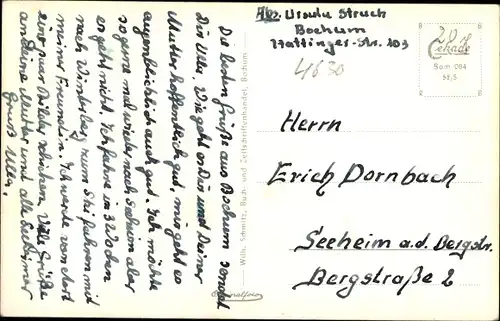 Die besten Grüße aus Bochum sendet
Dir Ulla. Wie geht es Dir und Deiner
Mutter hoffentlich gut, mir geht es
augenblicklich auch gut. Ich möchte
so gerne mal wieder nach Seeheim aber
es geht nicht. Ich fahre in 3 Wochen
nach Winterberg zum Ski fahren mit
meiner Freundin. Ich werde von dort
ein paar Bilder schicken. Viele Grüße
an deine Mutter und alle Seeheimer
Gruß Ulla.
Wilh. Schmitz, Buch- und Zeitschriftenhandel, Bochum
Abs. Ursula Struch
Bochum
Hattinger-Str. 103
4630
20 Pf
Cekade
Bom 084
52/5
Herrn
Erich Dornbach
Seeheim a.d. Bergstr.
Bergstraße 2